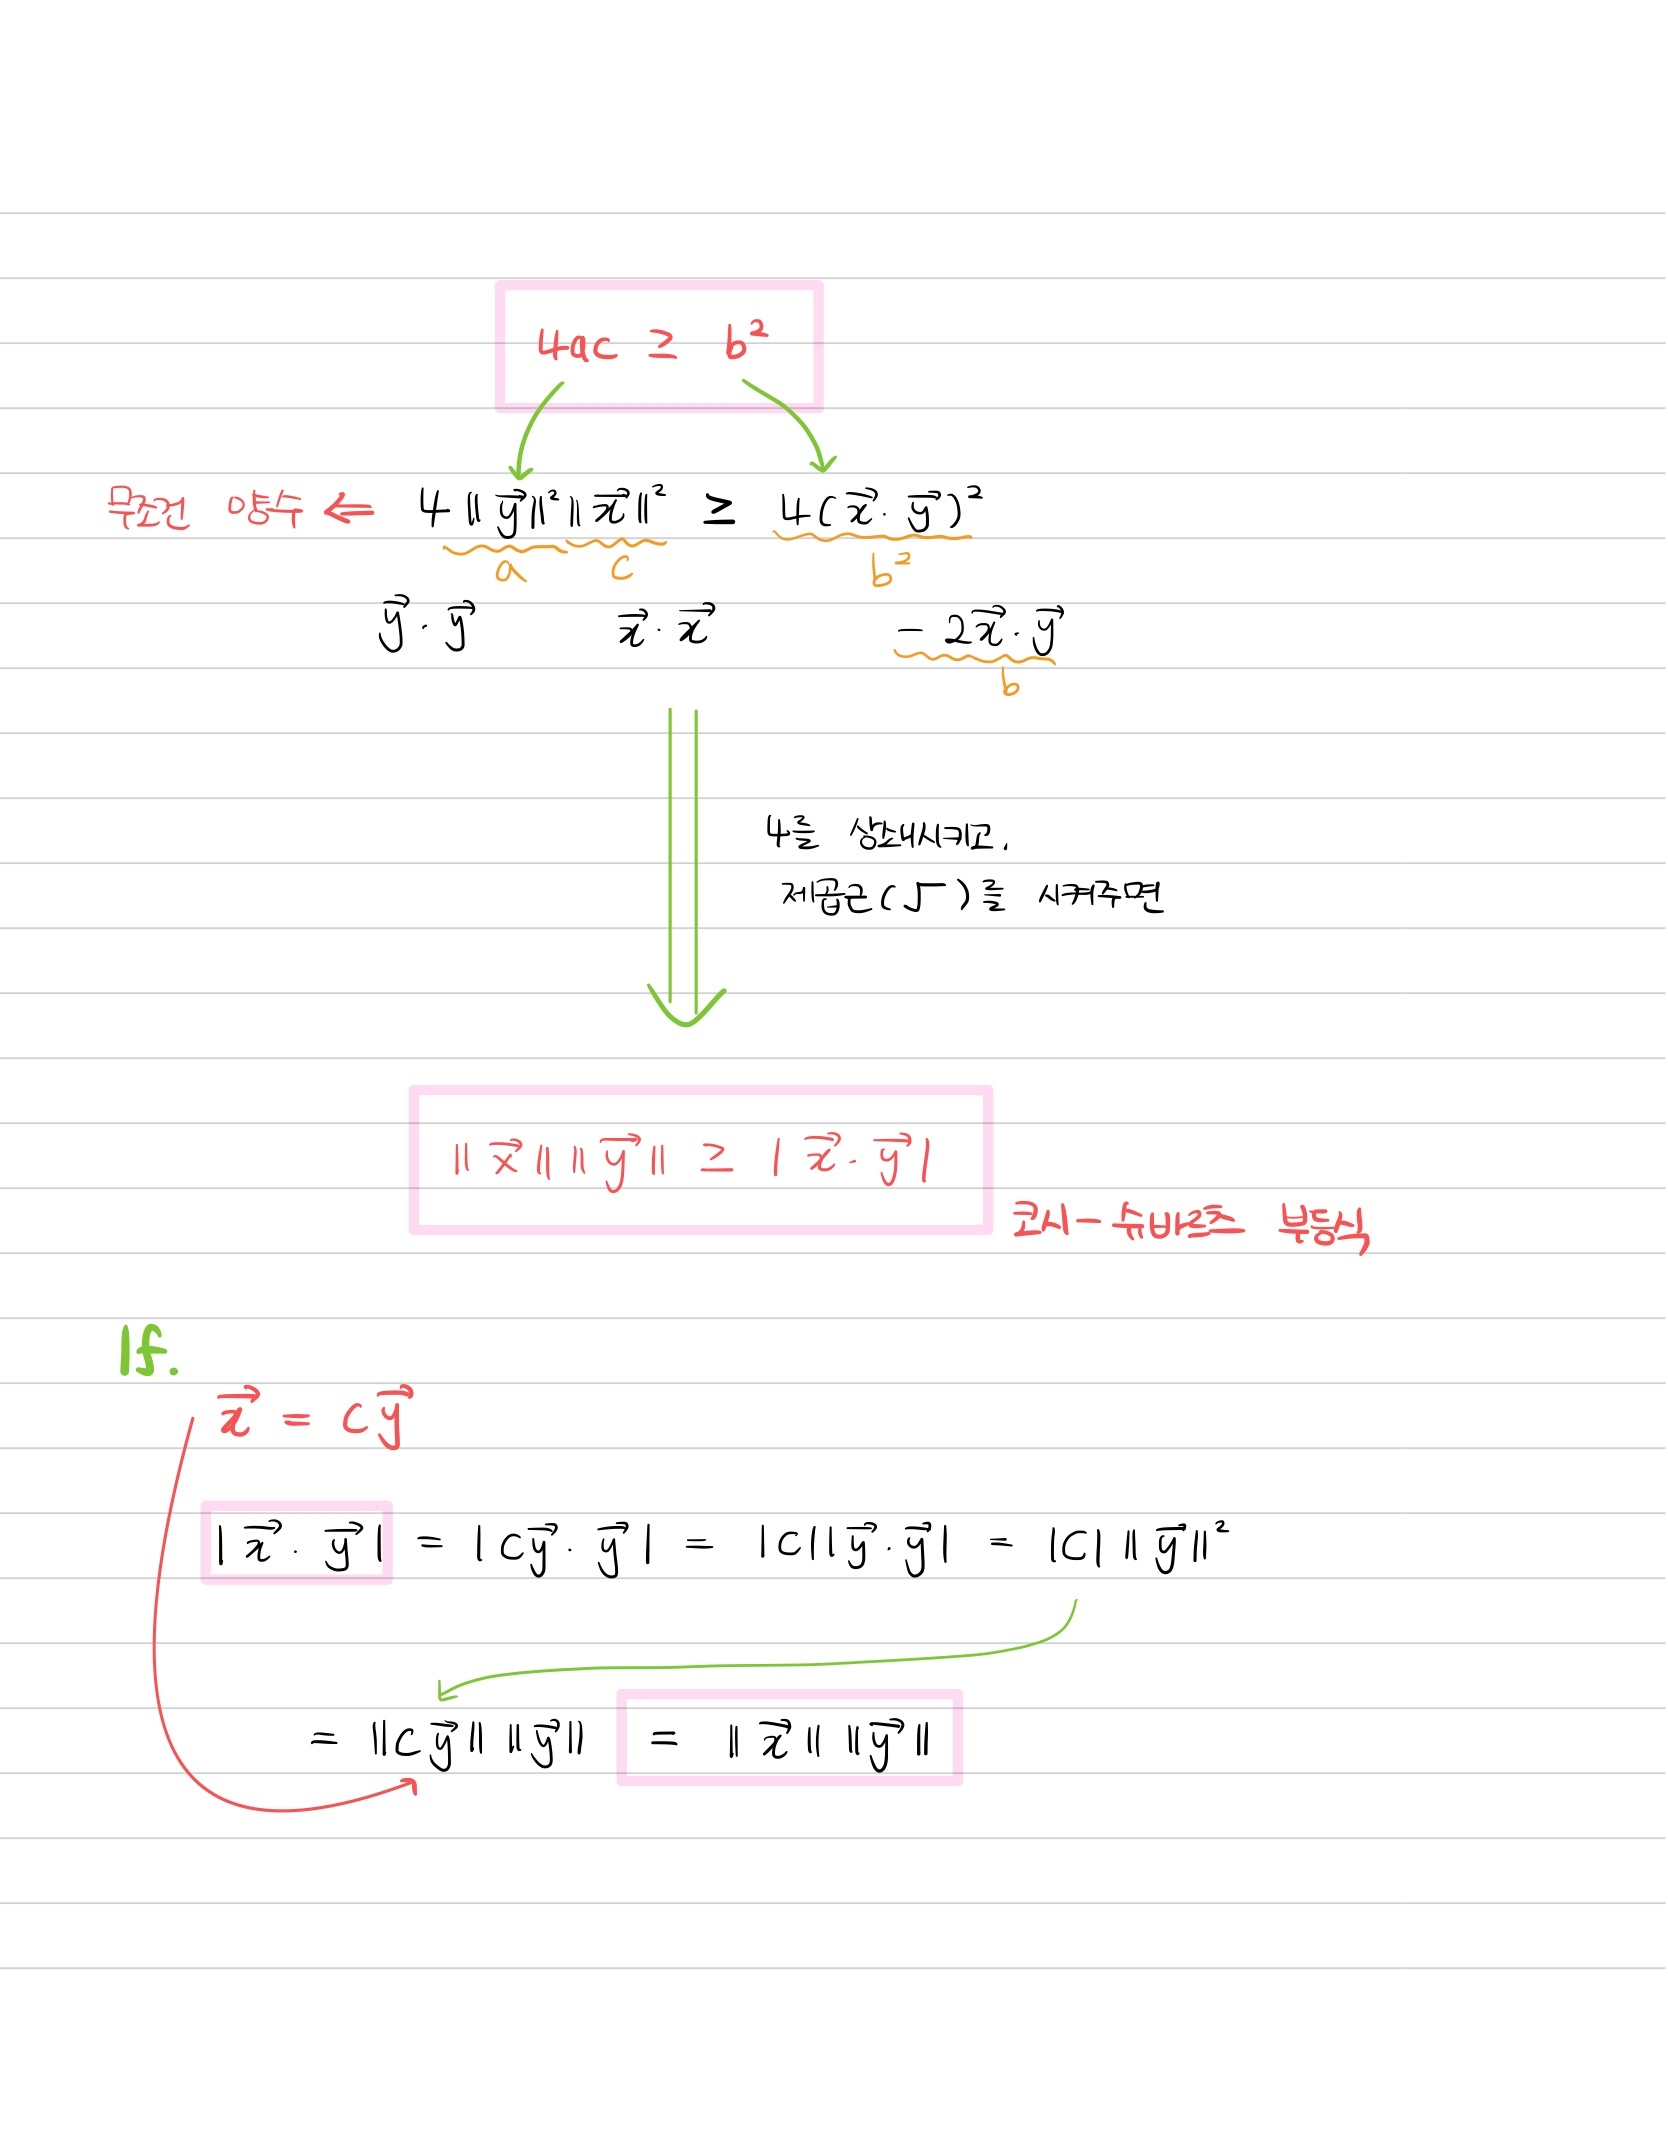 4ac ≥ b²
무조건 양수 ⇐ 4‖y⃗‖²‖x⃗‖² ≥ 4(x⃗·y⃗)²
a c b²
y⃗·y⃗ x⃗·x⃗ -2x⃗·y⃗
b
4를 상쇄시키고,
제곱근(√)를 시켜주면
‖x⃗‖‖y⃗‖ ≥ |x⃗·y⃗|
코시-슈바르츠 부등식
If.
x⃗ = cy⃗
|x⃗·y⃗| = |cy⃗·y⃗| = |c||y⃗·y⃗| = |c|‖y⃗‖²
= ‖cy⃗‖‖y⃗‖ = ‖x⃗‖‖y⃗‖